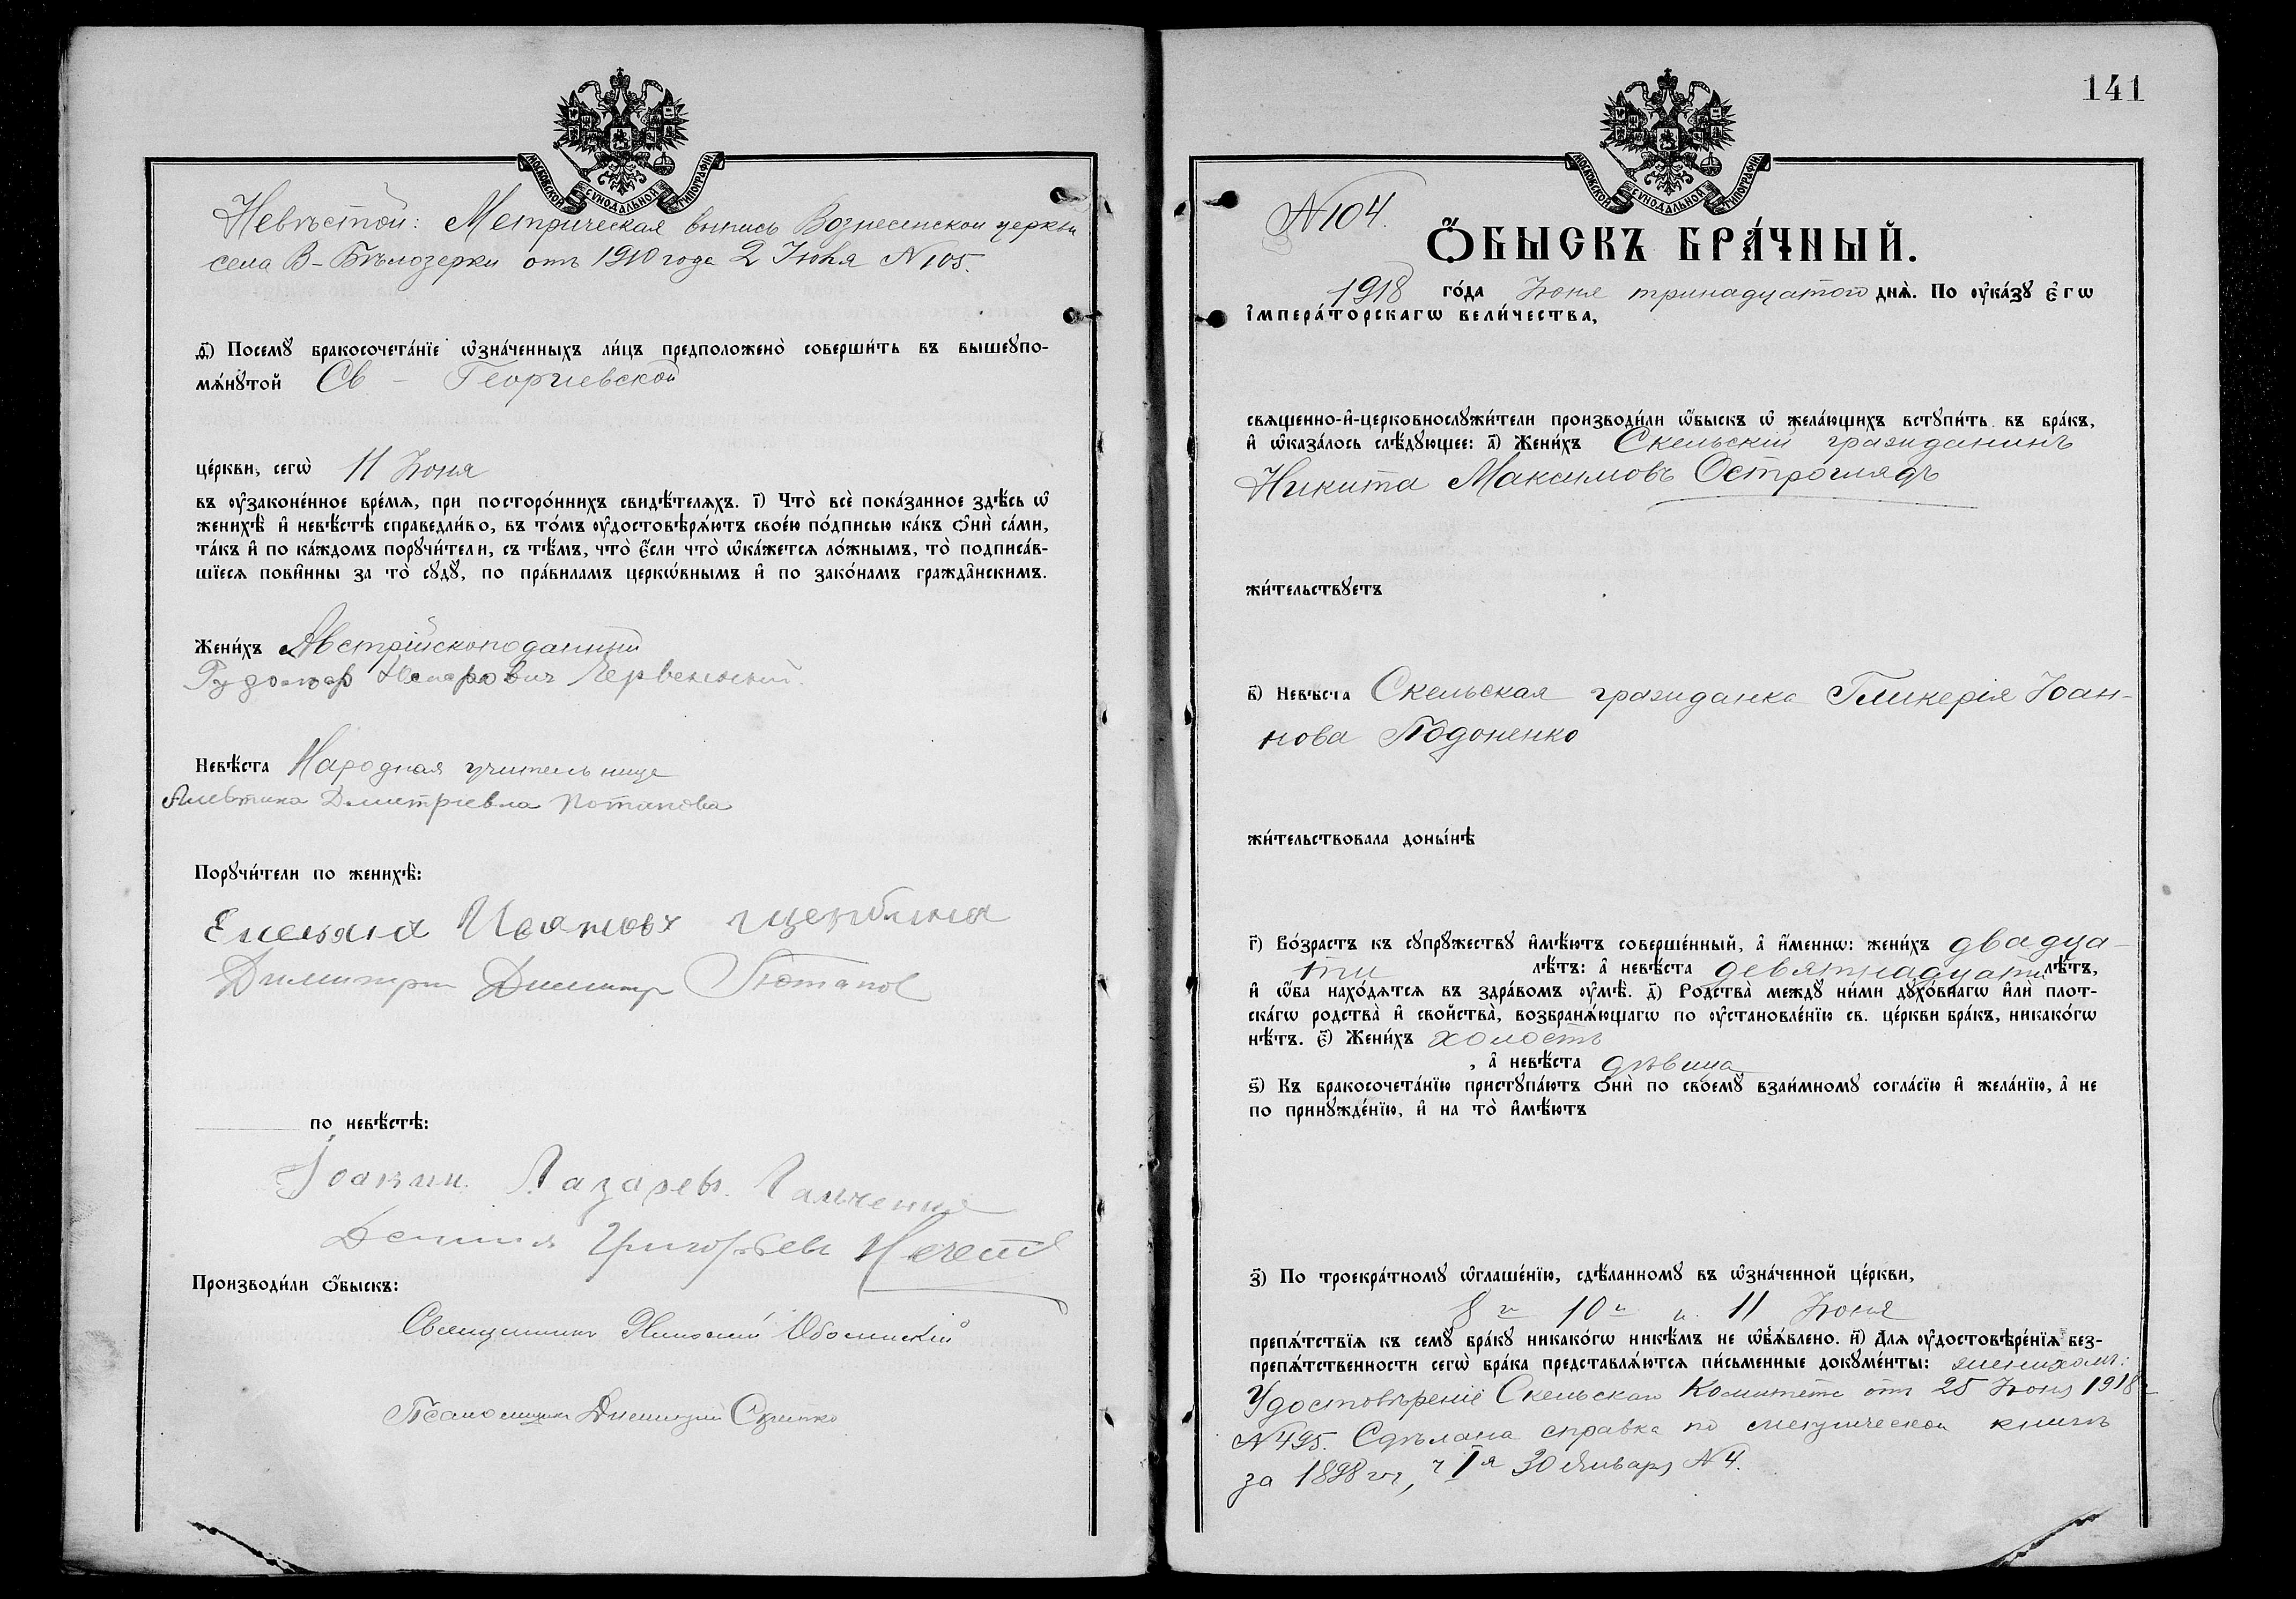 МОСКОВСКОЙ СѴНОДАЛЬНОЙ ТИПОГРАФІИ
Невѣстой: Метрическая выпись Вознесенской церкви
села В-Бѣлозерки отъ 1910 года 2 Июня N 105.
д҃) Посемꙋ̀ бракосочета́нїе ѡ҆зна́ченныхъ ли́цъ предположено̀ соверши́ть въ вышеꙋпо-
мѧ́нꙋтой Св - Георгіевской
це́ркви, сегѡ̀ 11 Іюня
въ ᲂу҆законе́нное вре́мѧ, при посторо́ннихъ свидѣ́телѧхъ. і҃) Что̀ всѐ пока́занное здѣ́сь ѡ҆
женихѣ̀ и҆ невѣ́стѣ справедли́во, въ то́мъ ᲂу҆достовѣрѧ́ютъ свое́ю по́дписью ка́къ ѻ҆нѝ са́ми,
та́къ и҆ по ка́ждомъ порꙋчи́тели, съ тѣ́мъ, что̀ є҆́сли что̀ ѡ҆ка́жетсѧ ло́жнымъ, то̀ подписа́в-
шїесѧ пови́нны за то̀ сꙋдꙋ̀, по пра́виламъ церкѡ́внымъ и҆ по зако́намъ гражда́нскимъ.
Жени́хъ Австрійскоподанный
Невѣ́ста Народная учительница
Алевтина Дмитріевна Потапова
Порꙋчи́тели по женихѣ̀:
Емельянъ Ивановъ
Димитри Димитр Потапов
по невѣ́стѣ:
Іоаким Лазаревъ
Григорьевъ
Производи́ли ѻ҆́быскъ:
Священникъ
Псаломщикъ Димитрій
141
МОСКОВСКОЙ СѴНОДАЛЬНОЙ ТИПОГРАФІИ
N 104.
Ѻ҆́БЫСКЪ БРА́ЧНЫЙ.
1918 го́да Іюня тринадцатого днѧ̀. По ᲂу҆ка́зꙋ є҆гѡ̀
і҆мпера́торскагѡ вели́чества,
свѧщенно-и҆-церковнослꙋжи́тели производи́ли ѡ҆́быскъ ѡ҆ жела́ющихъ встꙋпи́ть въ бра́къ,
и҆ ѡ҆каза́лось слѣ́дꙋющее: а҃) Жени́хъ Скельскій гражданинъ
Никита Максимовъ Острогляд
жи́тельствꙋетъ
в҃) Невѣ́ста Скельская гражданка Гликерія Іоан-
нова
жи́тельствовала доны́нѣ
г҃) Во́зрастъ къ сꙋпрꙋ́жествꙋ и҆мѣ́ютъ соверше́нный, а҆ и҆́меннѡ: жени́хъ двадца-
ти лѣ́тъ: а҆ невѣ́ста девятнадцати лѣ́тъ,
и҆ ѻ҆́ба нахо́дѧтсѧ въ здра́вомъ ᲂу҆мѣ̀. д҃) Родства̀ междꙋ ни́ми дꙋхо́внагѡ и҆лѝ плот-
ска́гѡ родства̀ и҆ свойства̀, возбранѧ́ющагѡ по ᲂу҆становле́нїю св. це́ркви бра́къ, никако́гѡ
нѣ́тъ. є҃) Жени́хъ холостъ
, а҆ невѣ́ста дѣвица
ѕ҃) Къ бракосочета́нїю пристꙋпа́ютъ ѻ҆нѝ по своемꙋ̀ взаи́мномꙋ согла́сїю и҆ жела́нїю, а҆ не
по принꙋжде́нїю, и҆ на то̀ и҆мѣ́ютъ
з҃) По троекра́тномꙋ ѡ҆глаше́нїю, сдѣ́ланномꙋ въ ѡ҆зна́ченной це́ркви,
8го 10го и 11 Іюня
препѧ́тствїѧ къ семꙋ̀ бра́кꙋ никако́гѡ никѣ́мъ не ѡ҆б̾ѧ́влено. и҃) Длѧ ᲂу҆достовѣре́нїѧ без-
препѧ́тственности сегѡ̀ бра́ка представлѧ́ютсѧ пи́сьменные докꙋме́нты: женихомъ:
Удостовѣреніе Скельскаго Комитета отъ 25 Іюня 1918 г
N 495. Сдѣлана справка по метрической книгѣ
за 1898 г., ч Iя 30 Января N 4.